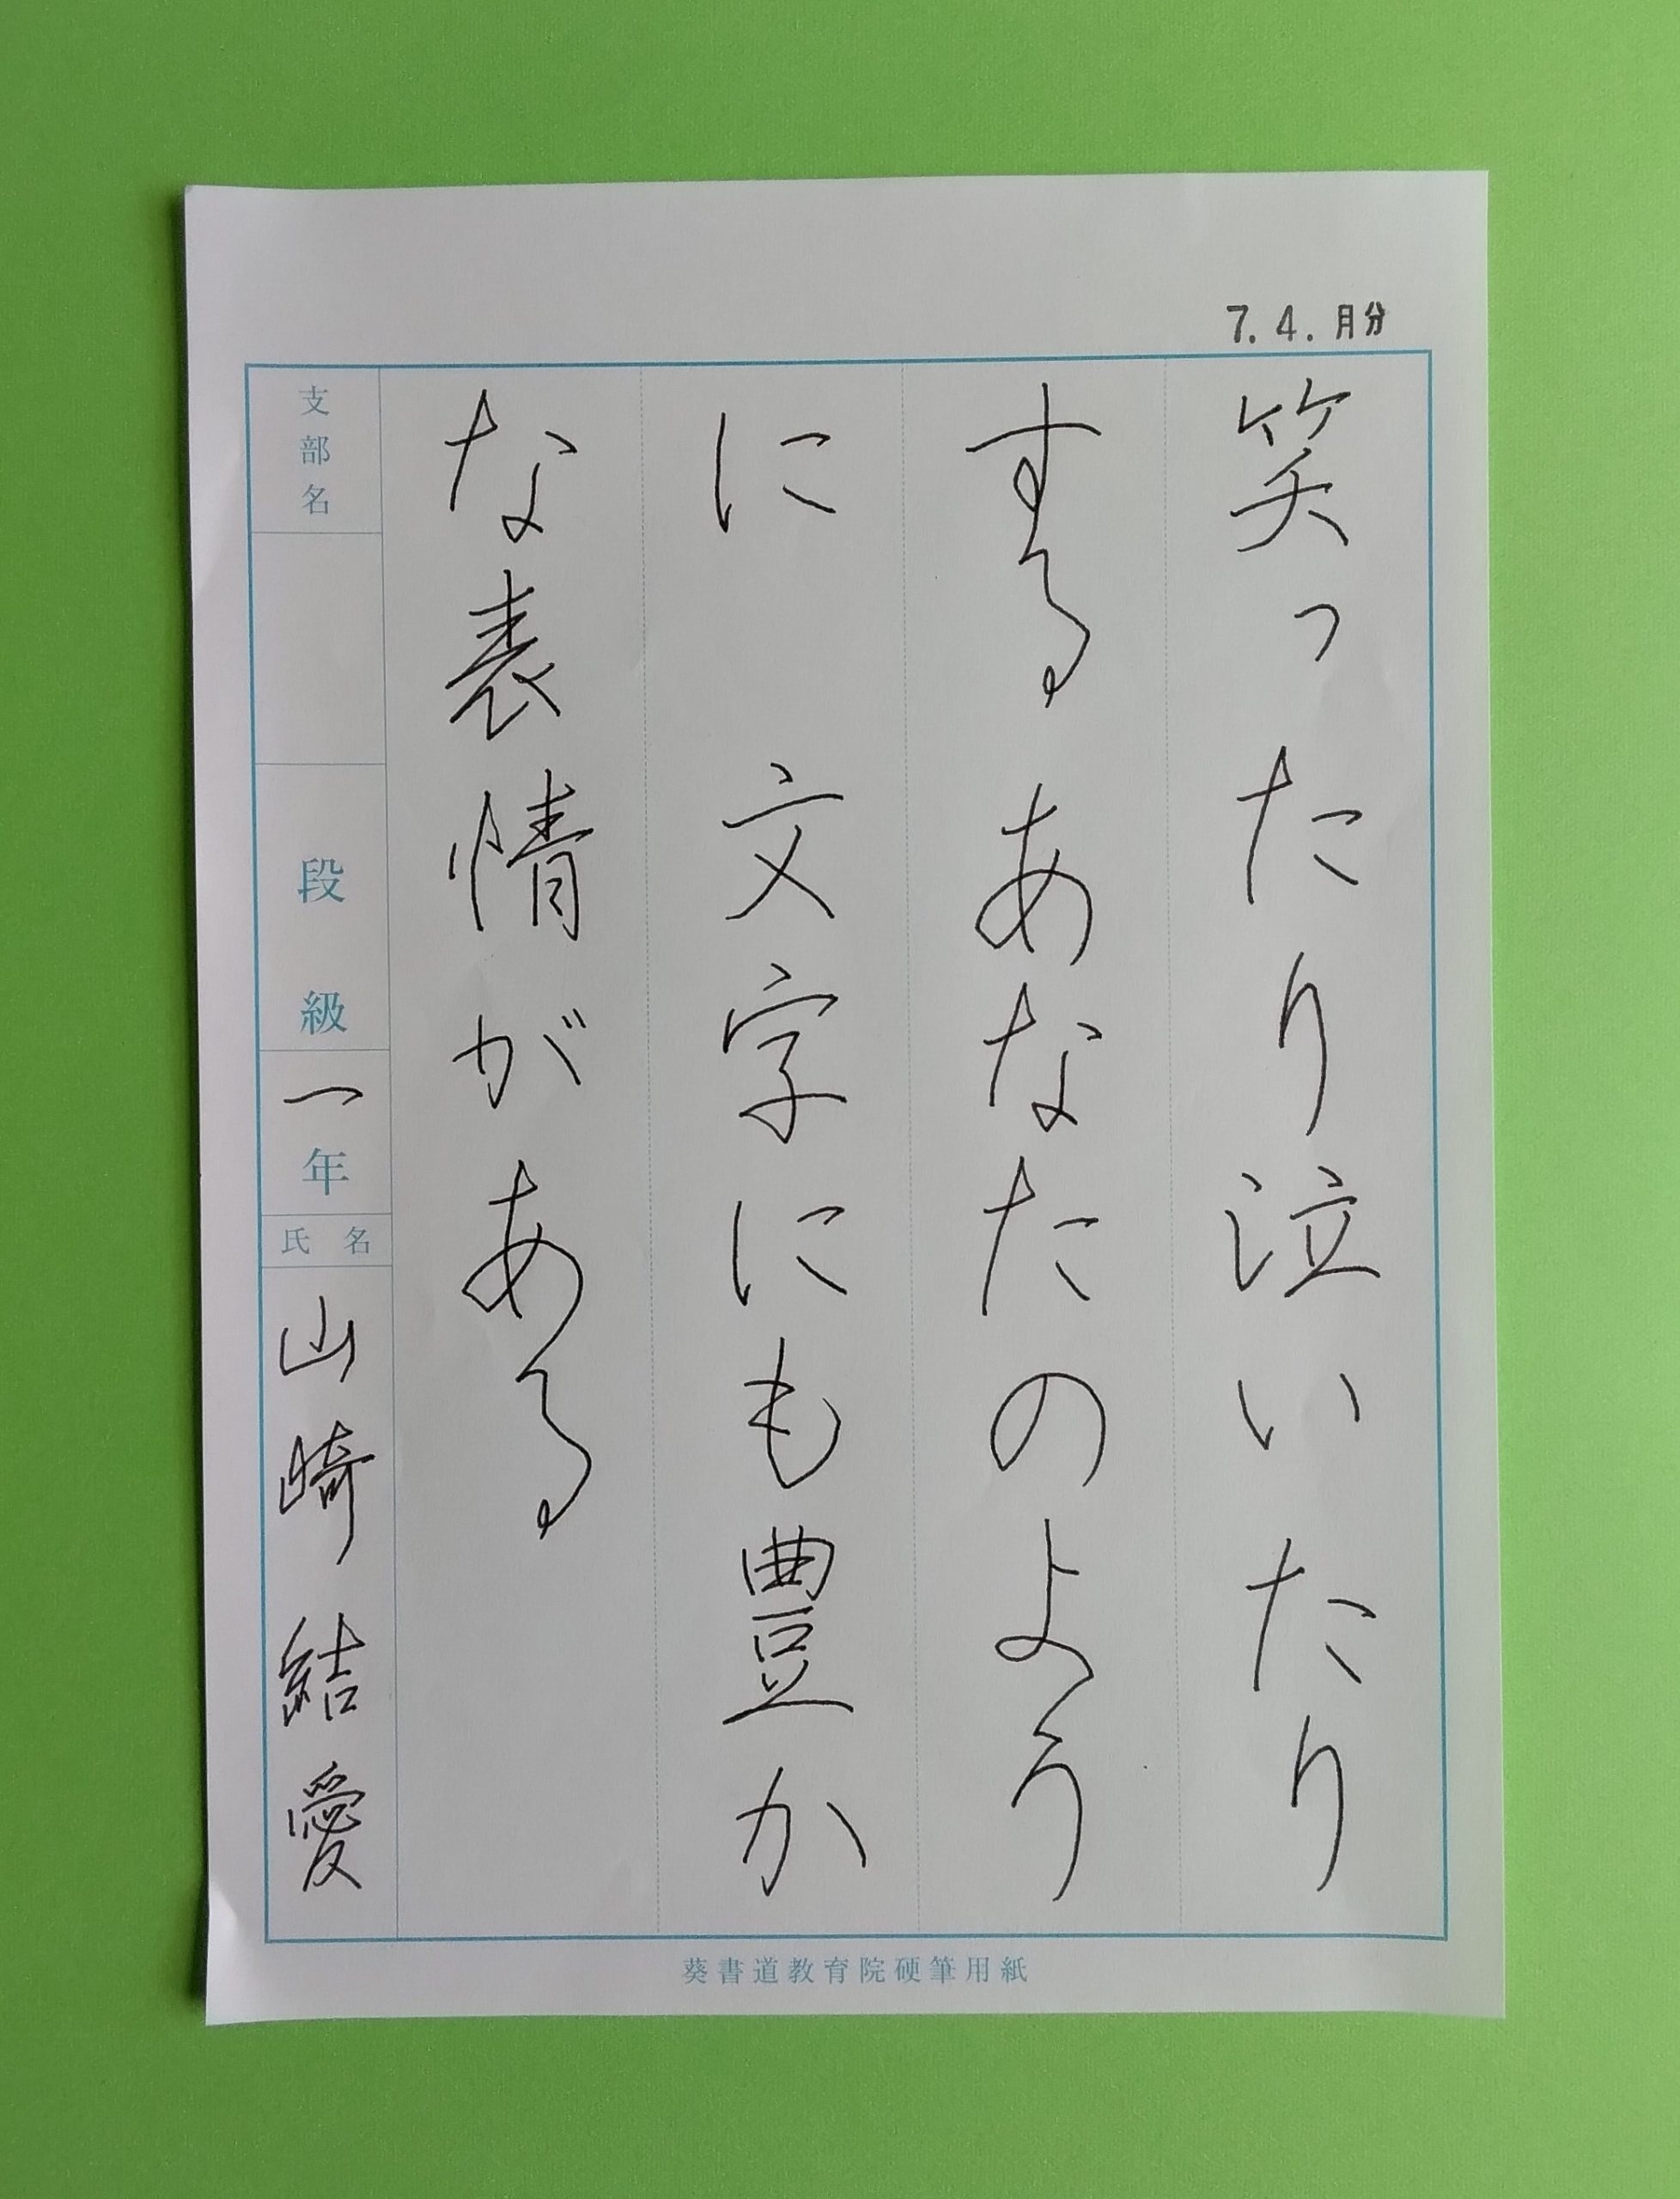 7.4.月分
笑ったり泣いたり
するあなたのよう
に 文字にも豊か
な表情がある
支部名
段級
一年
氏名
山崎結愛
葵書道教育院硬筆用紙